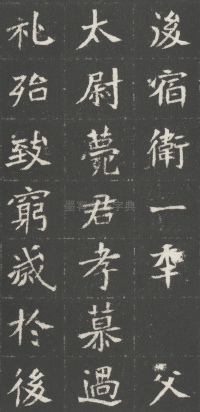 後宿衛一年 父
太尉薨君孝慕過
礼殆致窮滅於後